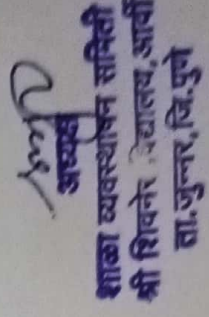 अध्यक्ष
शाळा व्यवस्थापन समिती
श्री शिवनेर विद्यालय, आर्वी
ता.जुन्नर,जि.पुणे